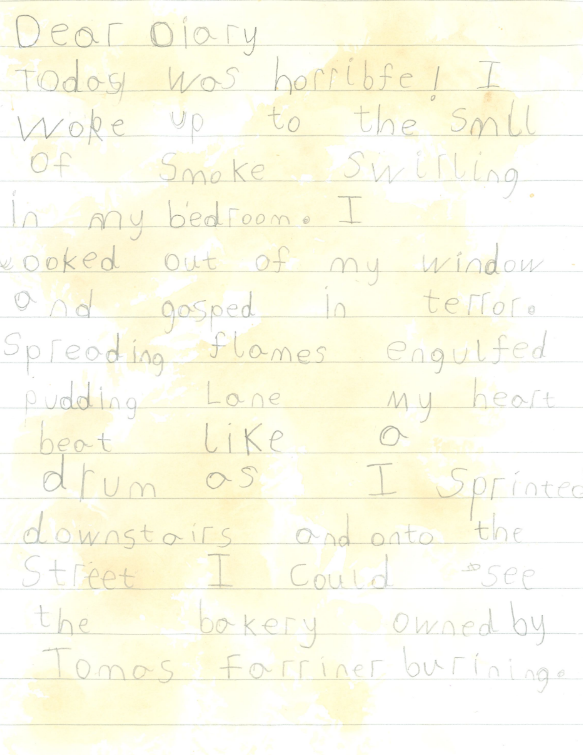 Dear Diary
Today was horribfe! I
woke up to the smll
of smoke swirling
in my bedroom. I
looked out of my window
and gasped in terror.
Spreading flames engulfed
pudding Lane my heart
beat like a
drum as I sprinted
downstairs and onto the
Street I could see
the bakery owned by
Tomas farriner burining.